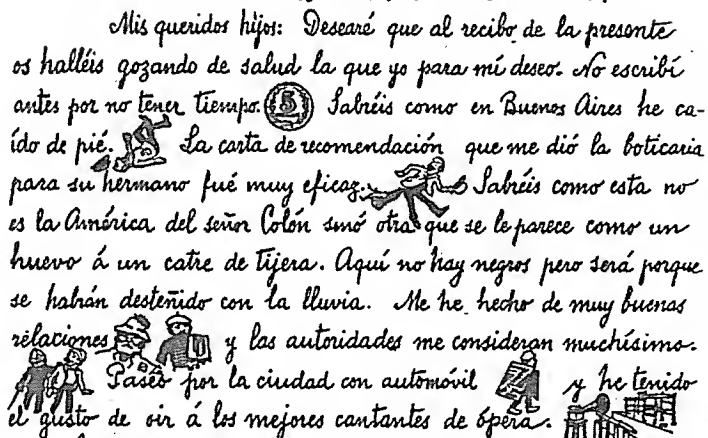 Mis queridos hijos: Desearé que al recibo de la presente
os halléis gozando de salud la que yo para mí deseo. No escribí
antes por no tener tiempo. 5 Sabréis como en Buenos Aires he ca-
ído de pié. La carta de recomendación que me dió la boticaria
para su hermano fué muy eficaz. Sabréis como esta no
es la América del señor Colón sinó otra que se le parece como un
huevo á un catre de tijera. Aquí no hay negros pero será porque
se habrán desteñido con la lluvia. Me he hecho de muy buenas
relaciones y las autoridades me consideran muchísimo.
Paseo por la ciudad con automóvil y he tenido
el gusto de oir á los mejores cantantes de ópera.